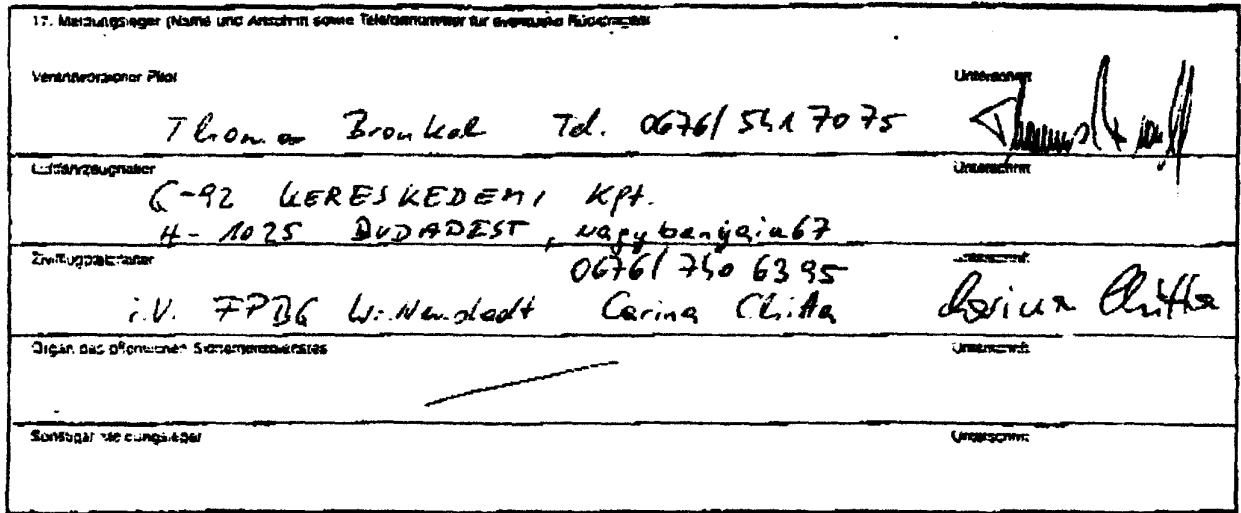 17. Meldungsleger (Name und Anschrift sowie Telefonnummer für eventuelle Rückfragen)
Verantwortlicher Pilot Unterschrift
Thomas Tel. 0676/ 541 70 75
Luftfahrzeughalter Unterschrift
KERESKEDEMI Kft.
H-1025 BUDADEST, nagybanyaia 67
Zivilflugplatzhalter 0676/ 740 63 95 Unterschrift
i.V. FPBG Wr. Neustadt Carina Chitta Carina Chitta
Organ des öffentlichen Sicherheitsdienstes Unterschrift
Sonstiger Meldungsleger Unterschrift